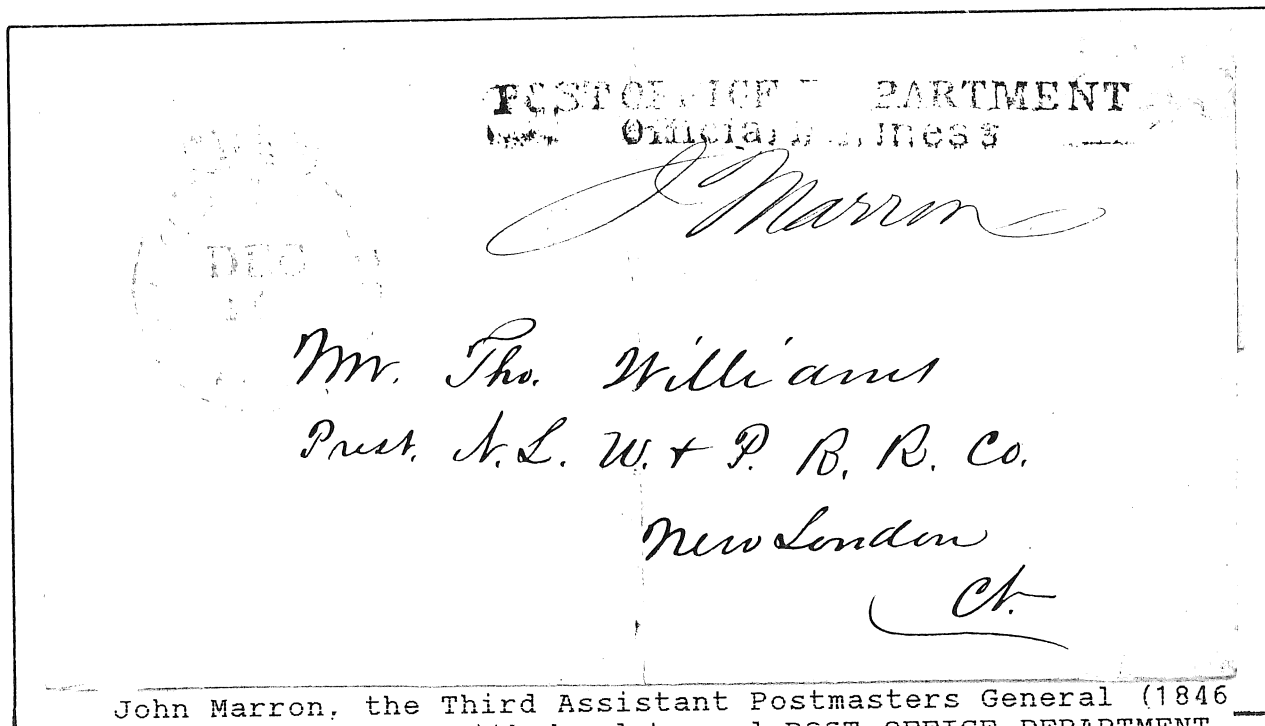 POST OFFICE DEPARTMENT
Official Business
J Marron
DEC
Mr. Tho. Williams
Prest. N. L. W. & P. R. R. Co.
New London
Ct.
John Marron, the Third Assistant Postmasters General (1846
POST OFFICE DEPARTMENT